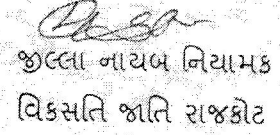 જીલ્લા નાયબ નિયામક
વિકસતિ જાતિ રાજકોટ